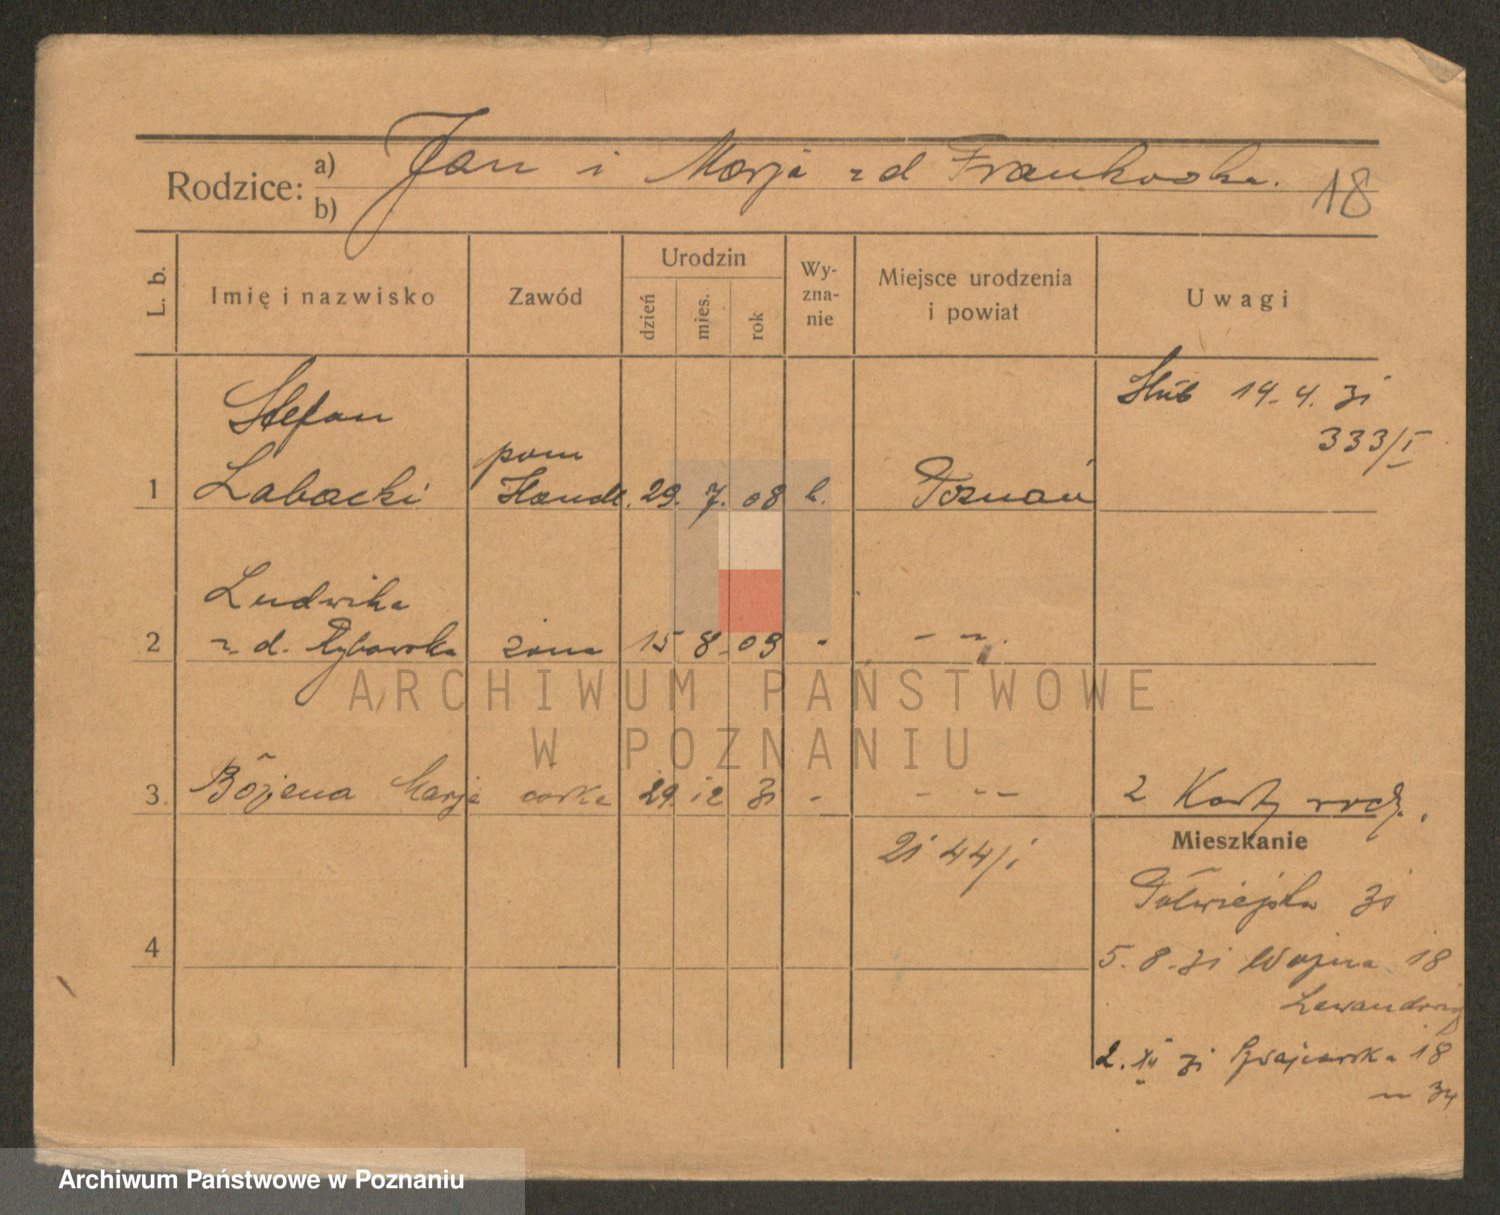 Rodzice: a) Jan i Marja zd Frankowska. 18
b)
L. b. Imię i nazwisko Zawód Urodzin Wy- zna- nie Miejsce urodzenia i powiat Uwagi
dzień mies. rok
Stefan Ślub 19. 4. 31
pom 333/I
1 Łabacki Handl. 29. 7. 08 k. Poznań
Ludwika
2 z. d. Rybowska żona 15 8. 09 - - -
ARCHIWUM PAŃSTWOWE
W POZNANIU
3. Bożena Marja córka 29. 12 31 - - - - 2 Karty rodz.
Mieszkanie
21 44/1
Półwiejska 31
4
5. 8. 31 Wożna 18
2. XII 31 Szwajcarska 18
34
Archiwum Państwowe w Poznaniu